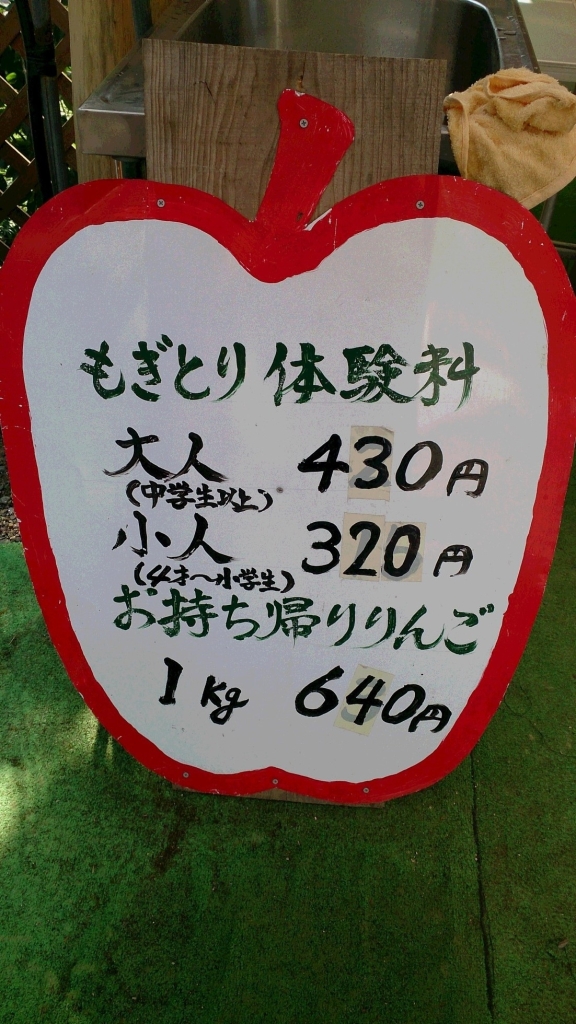 もぎとり体験料
大人 430円
(中学生以上)
小人 320円
(4才〜小学生)
お持ち帰りりんご
1Kg 640円